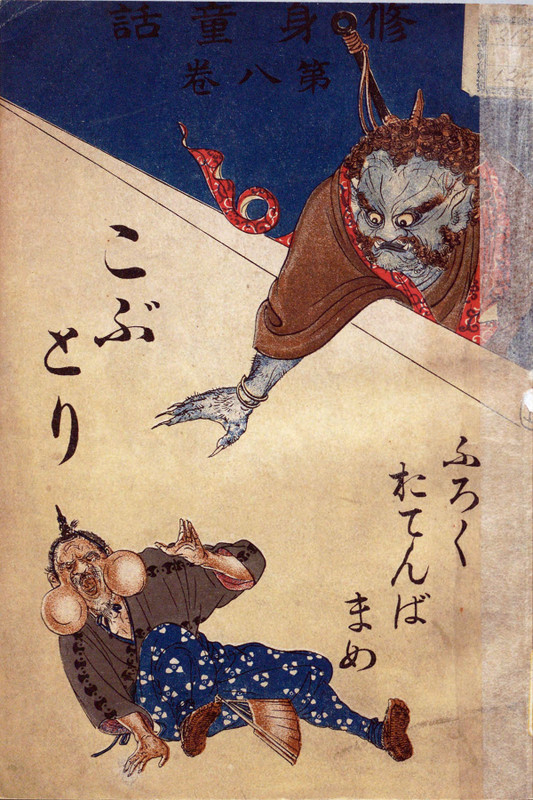 修身童話
第八卷
こぶ
とり
ふろく
おてんば
まめ